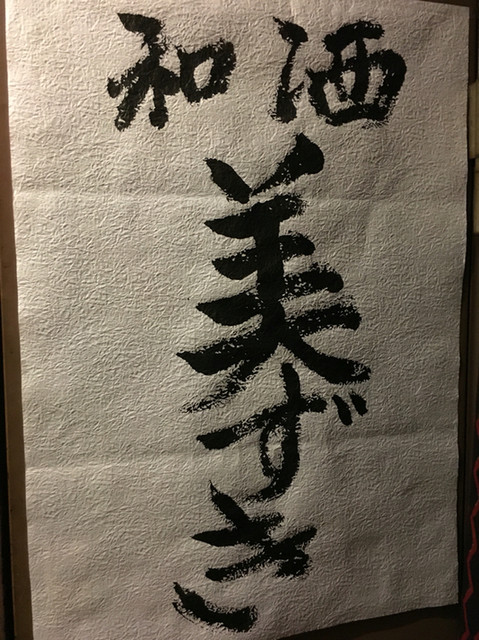 和洒
美ずき